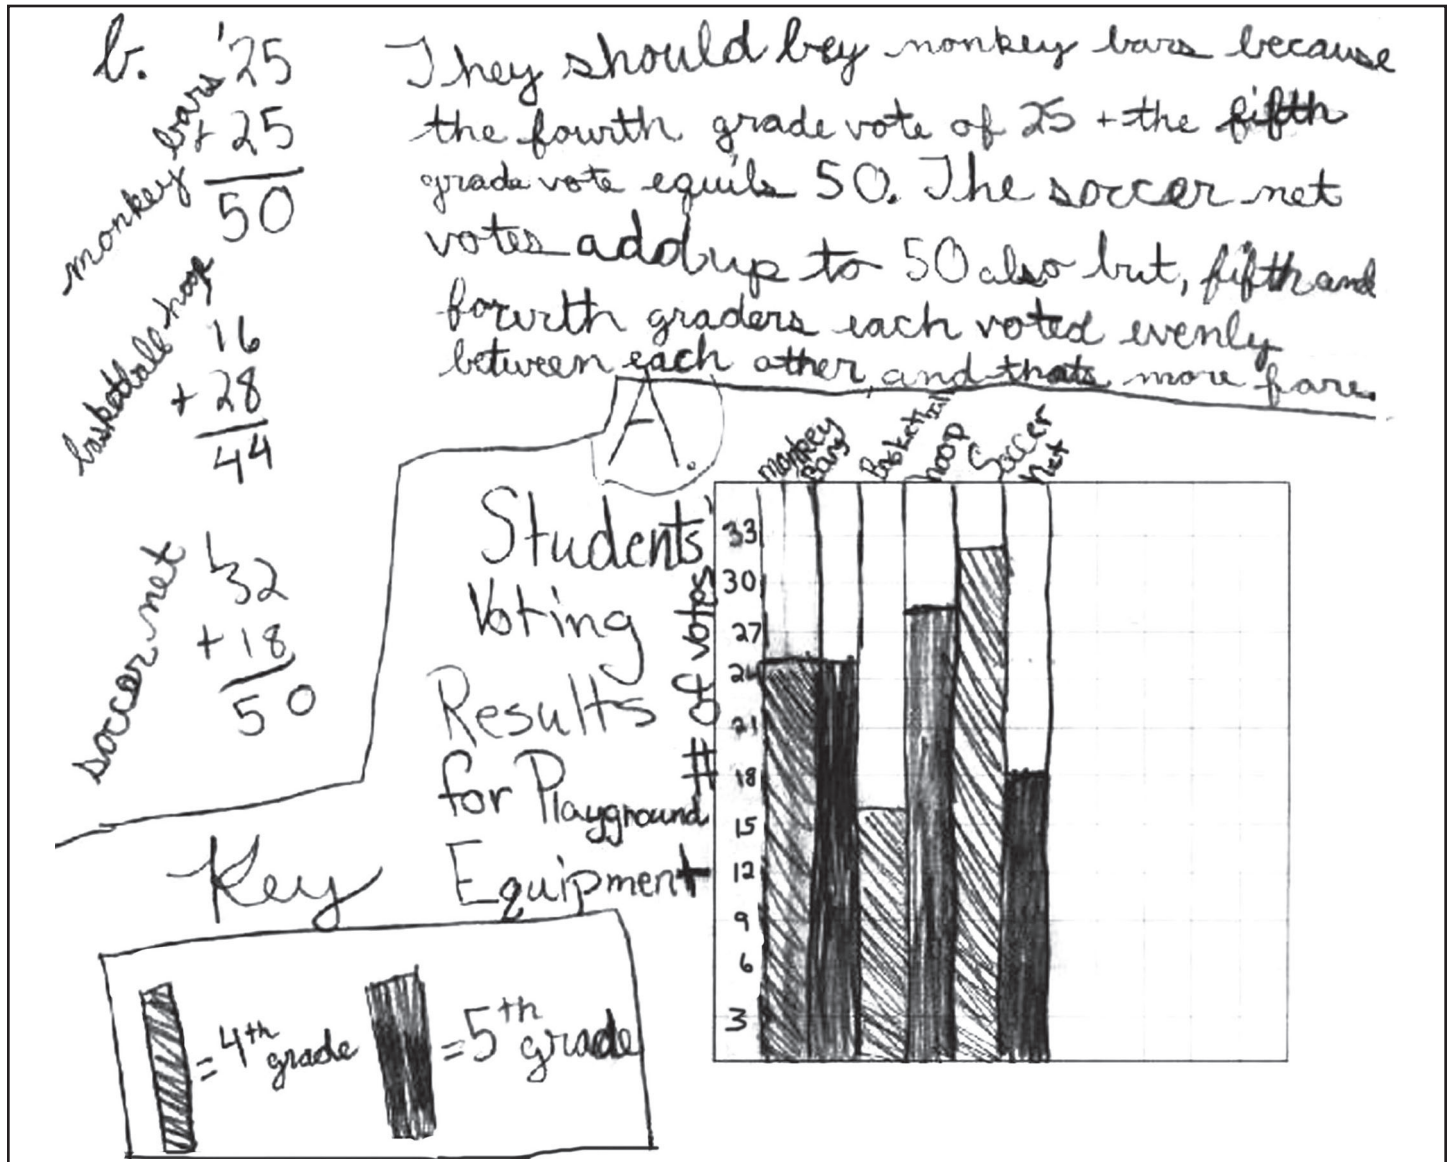 b.
monkey bars
25
+ 25
50
basketball hoop
16
+ 28
44
soccer net
1
32
+ 18
50
They should bey monkey bars because
the fourth grade vote of 25 + the fifth
grade vote equils 50. The soccer net
votes add up to 50 also but, fifth and
fourth graders each voted evenly
between each other and thats more fare.
A.
Students'
Voting
Results
for Playground
Equipment
# of votes
monkey bars
Basketball hoop
Soccer net
33
30
27
24
21
18
15
12
9
6
3
Key
= 4th grade
= 5th grade